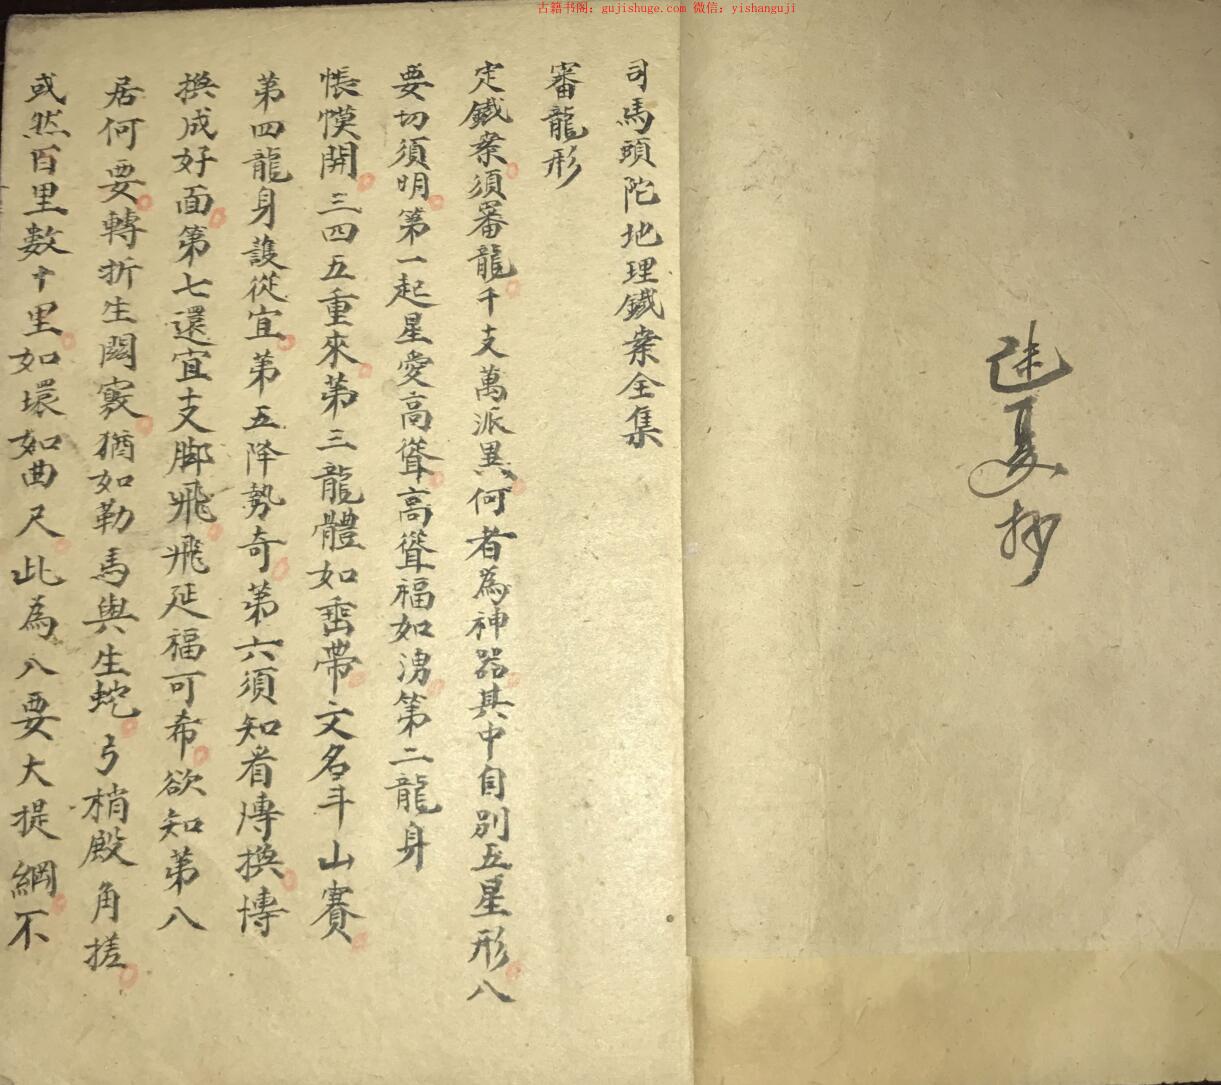 古籍书阁：gujishuge.com 微信：yishanguji
夏抄
司馬頭陀地理鐵案全集
審龍形
定鐵案須審龍千支萬派異何者為神器其中自別五星形八
要切須明第一起星愛高聳高聳福如湧第二龍身
帳幙開三四五重來第三龍體如垂帶文名斗山賽
第四龍身護從宜第五降勢奇第六須知看愽換愽
換成好面第七還宜支脚飛飛延福可希欲知第八
居何要轉折生竅猶如勒馬與生蛇弓梢殿角搓
或然百里数十里如環如曲尺此為八要大提綱不